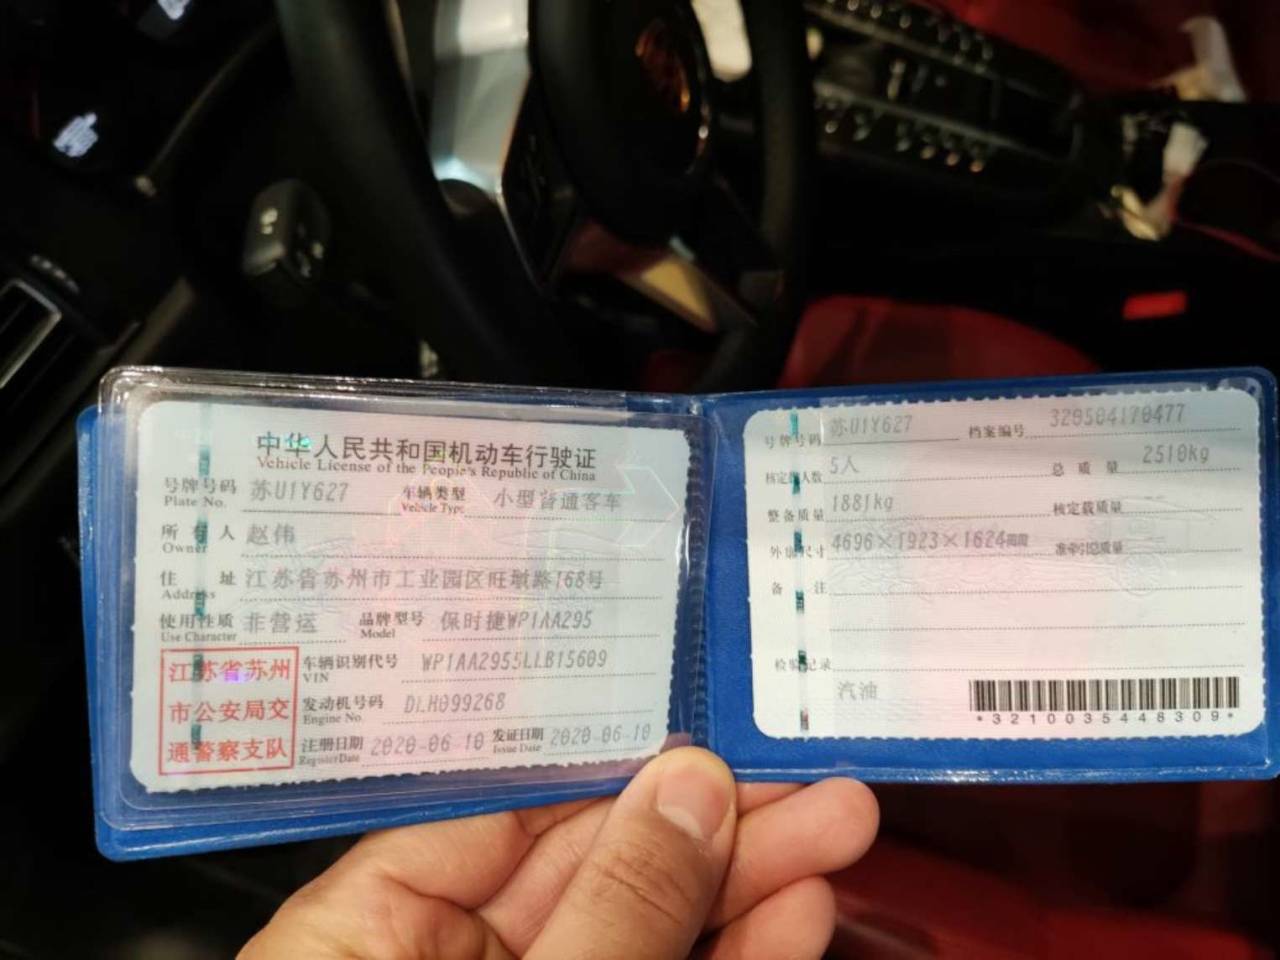 中华人民共和国机动车行驶证
Vehicle License of the People's Republic of China
号牌号码 苏U1Y627 车辆类型 小型普通客车
Plate No. Vehicle Type
所有人 赵伟
Owner
住址 江苏省苏州市工业园区旺墩路168号
Address
使用性质 非营运 品牌型号 保时捷WP1AA295
Use Character Model
江苏省苏州
市公安局交
通警察支队
车辆识别代号 WP1AA2955LLB15609
VIN
发动机号码 DLH099268
Engine No.
注册日期 2020-06-10 发证日期 2020-06-10
Register Date Issue Date
号牌号码 苏U1Y627 档案编号 320504170477
核定载人数 5人 总质量 2510kg
整备质量 1881kg 核定载质量
外廓尺寸 4696×1923×1624 准牵引总质量
备注
检验记录
汽油
*3210035448309*